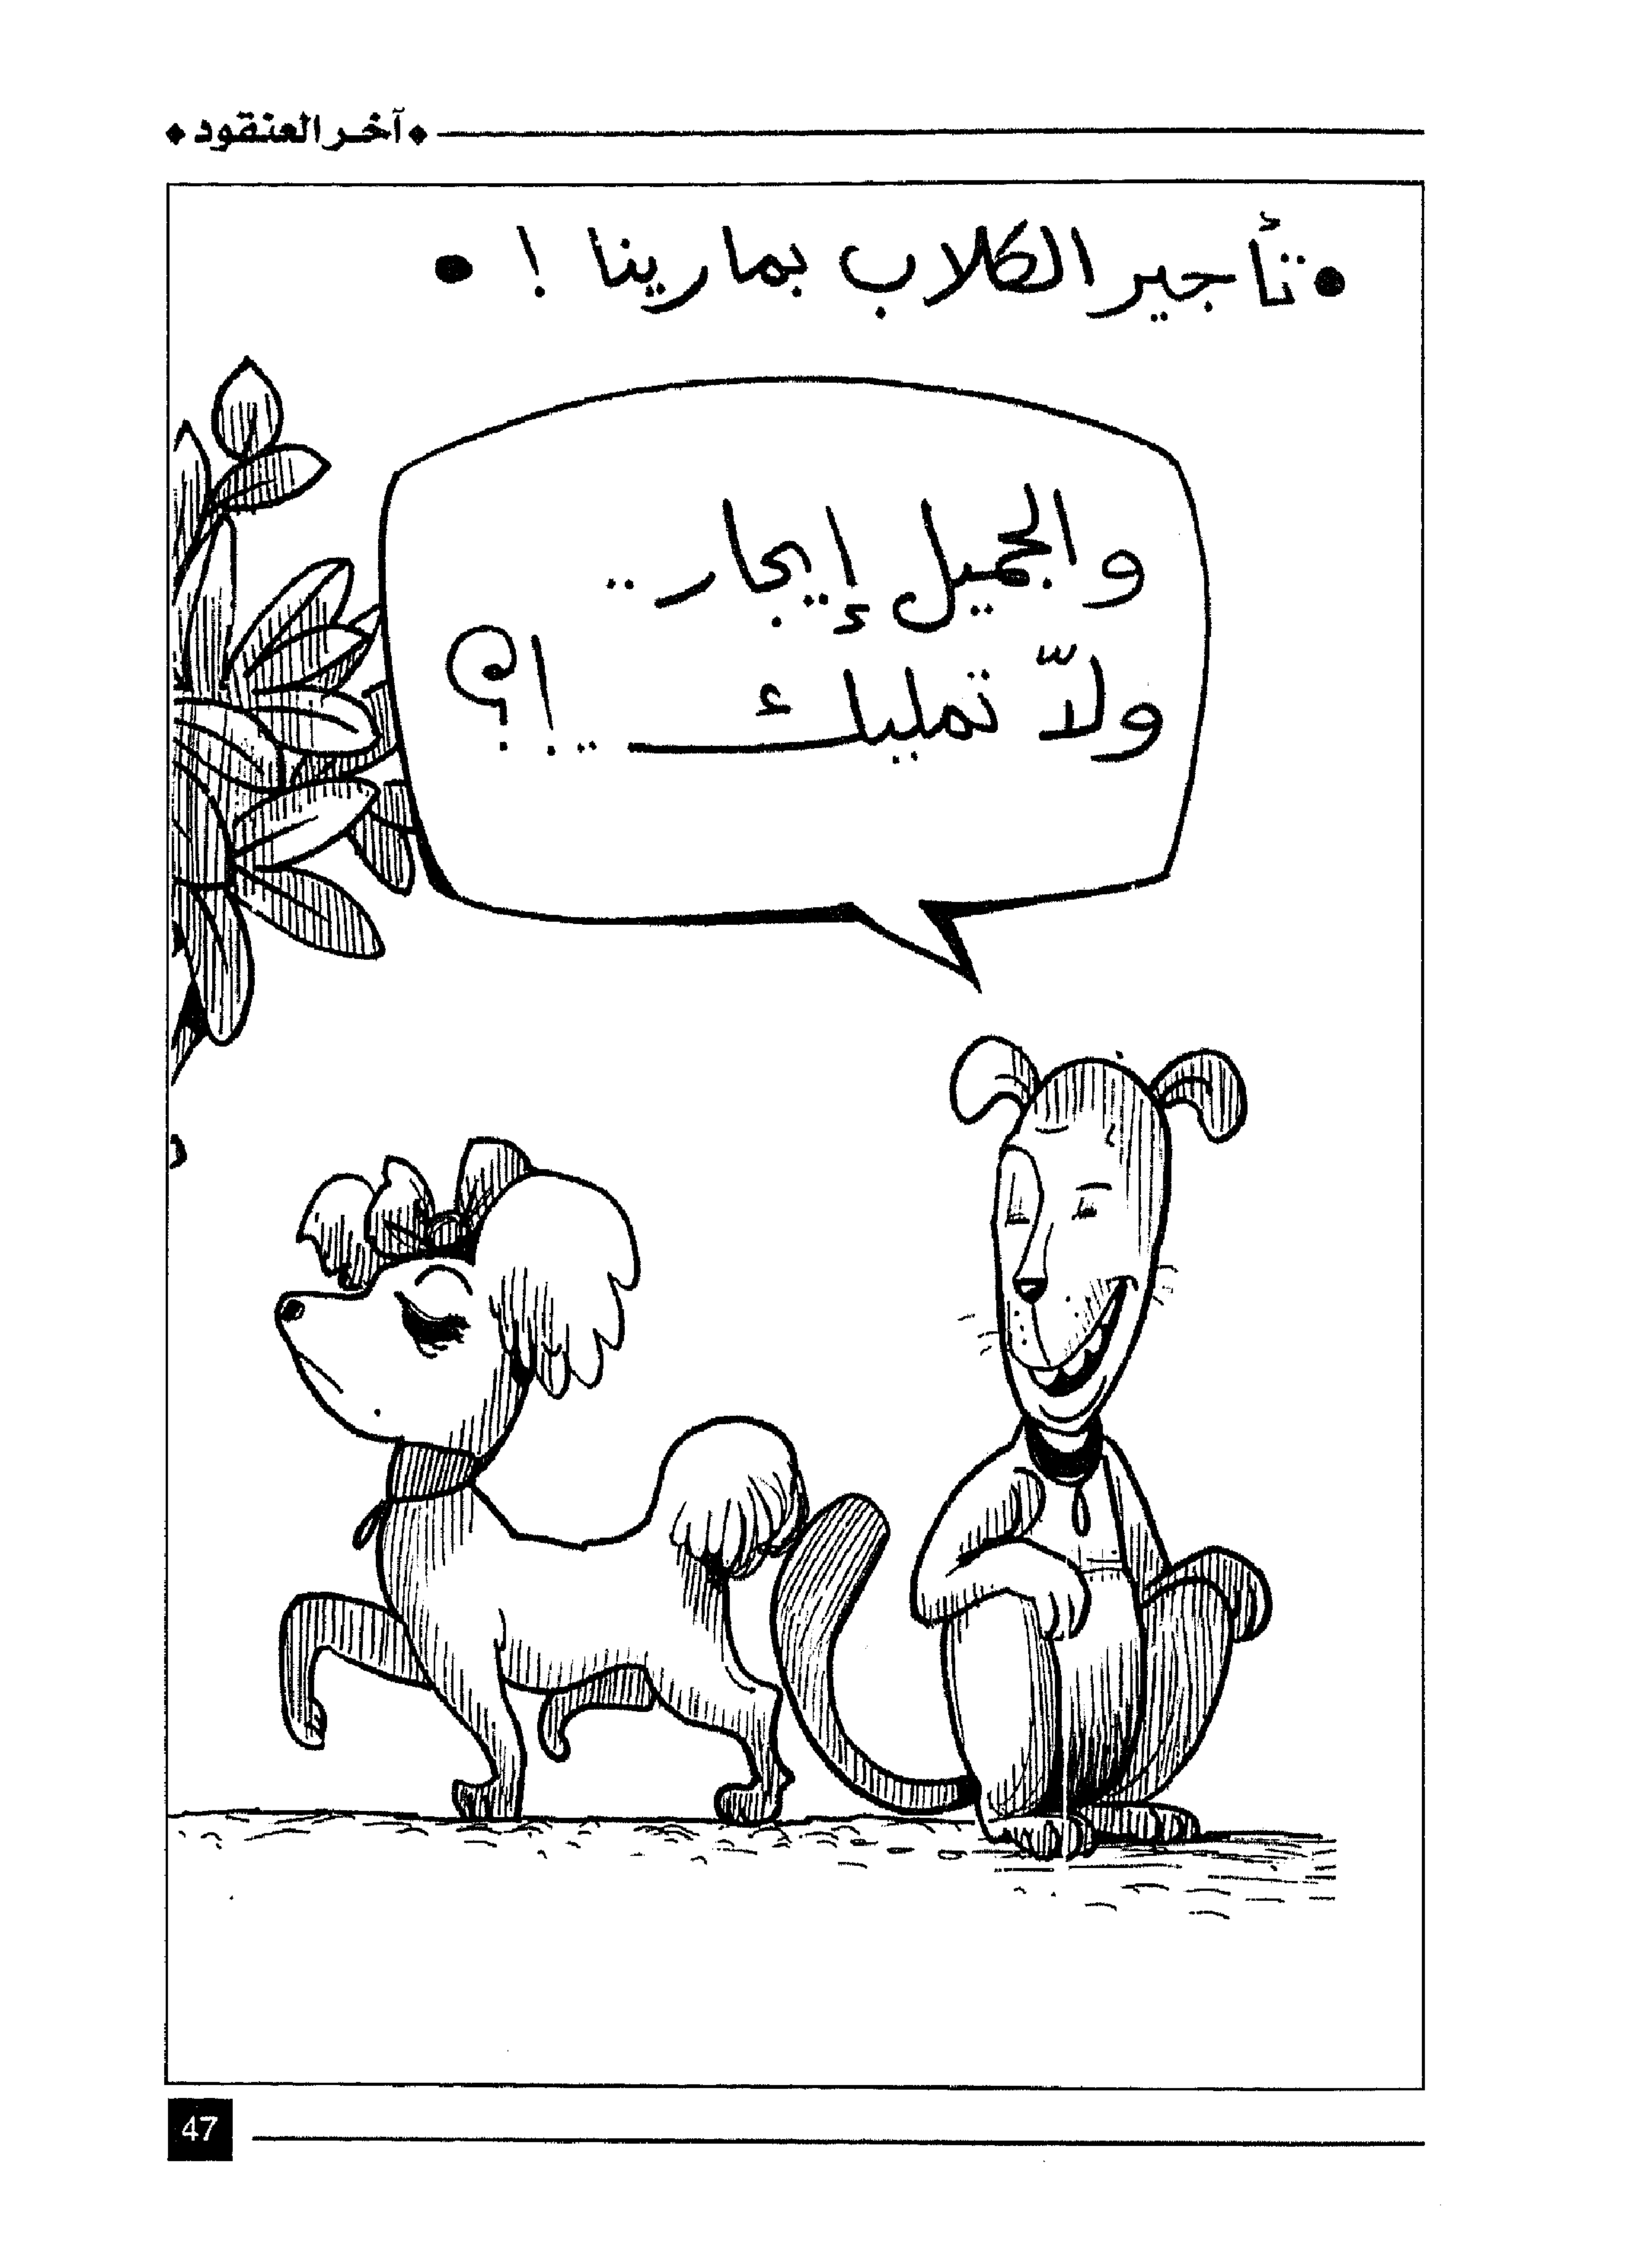 ◆ آخر العنقود ◆
• تأجير الكلاب بمارينا ! •
والجميل إيجار ..
ولاّ تمليك .. !؟
47